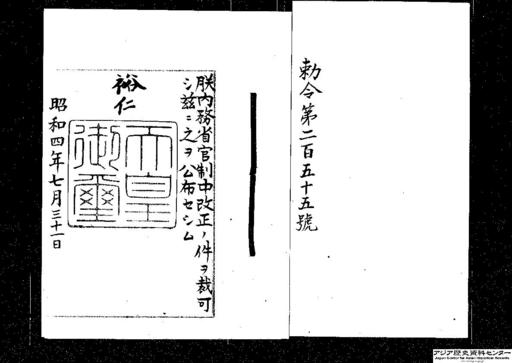 勅令第二百五十五號
朕内務省官制中改正ノ件ヲ裁可
シ茲ニ之ヲ公布セシム
裕仁
天皇
御璽
昭和四年七月三十一日
アジア歴史資料センター
Japan Center for Asian Historical Records